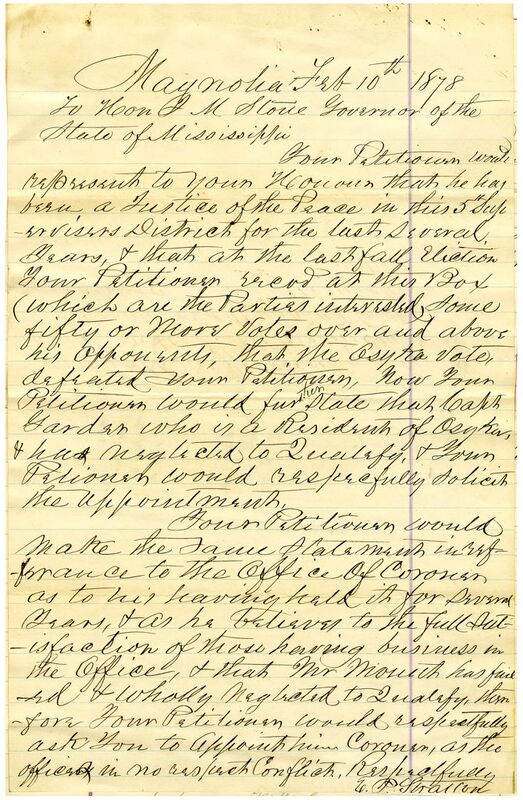 Magnolia Feb 10th 1878
To Hon J M Stone Governor of the
State of Mississippi
Your Petitioner would
represent to your Honour that he has
been a Justice of the Peace in this 5th Sup-
-ervisers District for the last Several
Years, & that at the last fall Election
Your Petitioner recvd at this Box
(which are the Parties interested, Some
fifty or More Votes over and above
his Opponents, that the Osyka Vote,
defeated Your Petitioner, Now Your
Petitioner would further State that Capt
Garden who is a Resident of Osyka,
& has neglected to Qualefy, & Your
Petioner would respecfully Solicit
the appointment,
Your Petitioner would
make the Same Statement in ref-
-ferance to the Office Of Coroner
as to his having held it for Several
Years, & as he believes to the full Sat-
-isfaction of those having business in
the Office, & that Mr Mount has fail
-ed & wholly Neglected to Qualefy, there
-fore Your Petitioner would respectfully
ask You to appoint him Coroner, as the
offices in no respect Conflict, Respectfully
E. P. Stratton